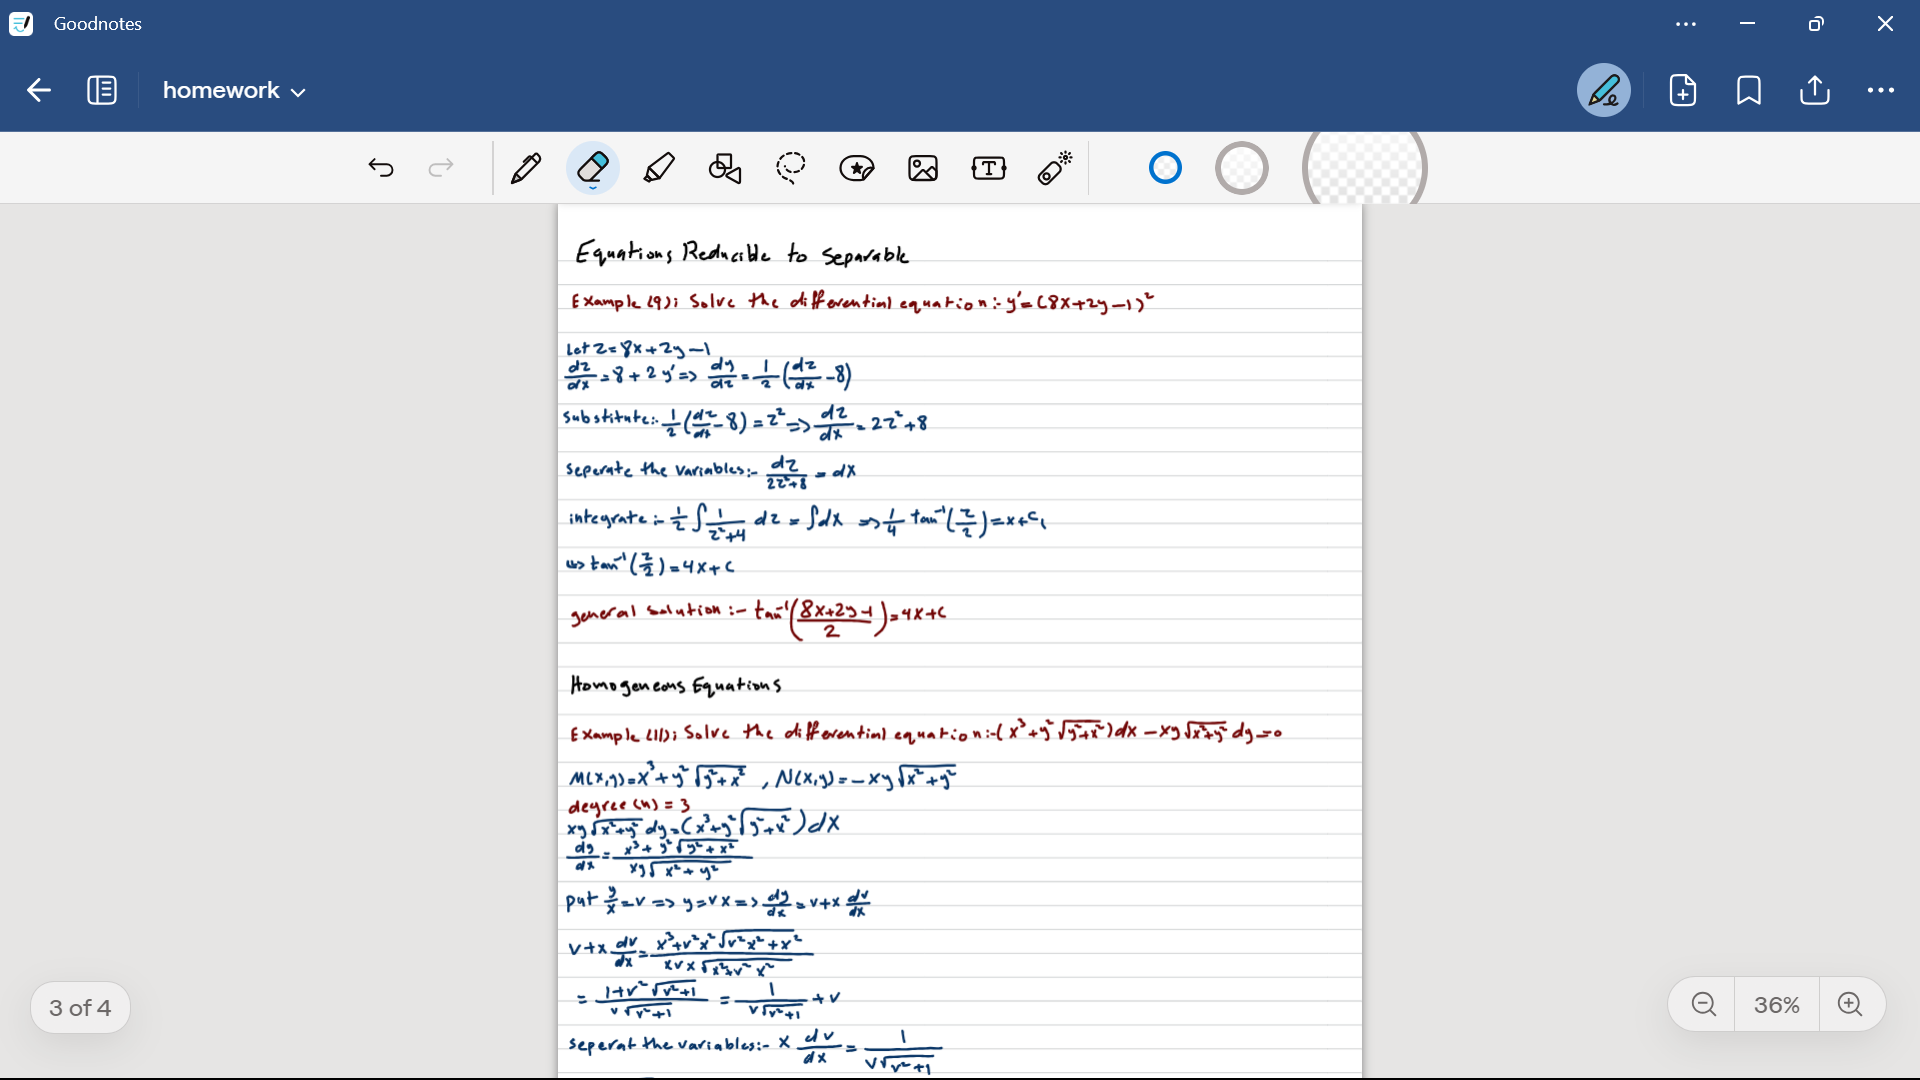 Goodnotes
homework
Equations Reducible to Separable
Example (9); Solve the differential equation:- y′=(8x+2y−1)²
Let z=8x+2y−1
dz/dx=8+2y′=> dy/dz=1/2(dz/dx−8)
substitute:- 1/2(dz/dx−8)=z²=>dz/dx=2z²+8
seperate the variables:- dz/2z²+8=dx
integrate:- 1/2∫1/z²+4 dz=∫dx =>1/4 tan⁻¹(z/2)=x+c₁
=>tan⁻¹(z/2)=4x+c
general solution:- tan⁻¹(8x+2y−1/2)=4x+c
Homogeneous Equations
Example (11); Solve the differential equation:-(x³+y²√y²+x²)dx−xy√x²+y² dy=0
M(x,y)=x³+y²√y²+x² , N(x,y)=−xy√x²+y²
degree(n)=3
xy√x²+y² dy=(x³+y²√y²+x²)dx
dy/dx=x³+y²√y²+x²/xy√x²+y²
put y/x=v=>y=vx=>dy/dx=v+x dv/dx
v+x dv/dx=x³+v²x²√v²x²+x²/xvx√x²+v²x²
=1+v²√v²+1/v√v²+1=1/v√v²+1+v
seperat the variables:- x dv/dx=1/v√v²+1
3 of 4
36%